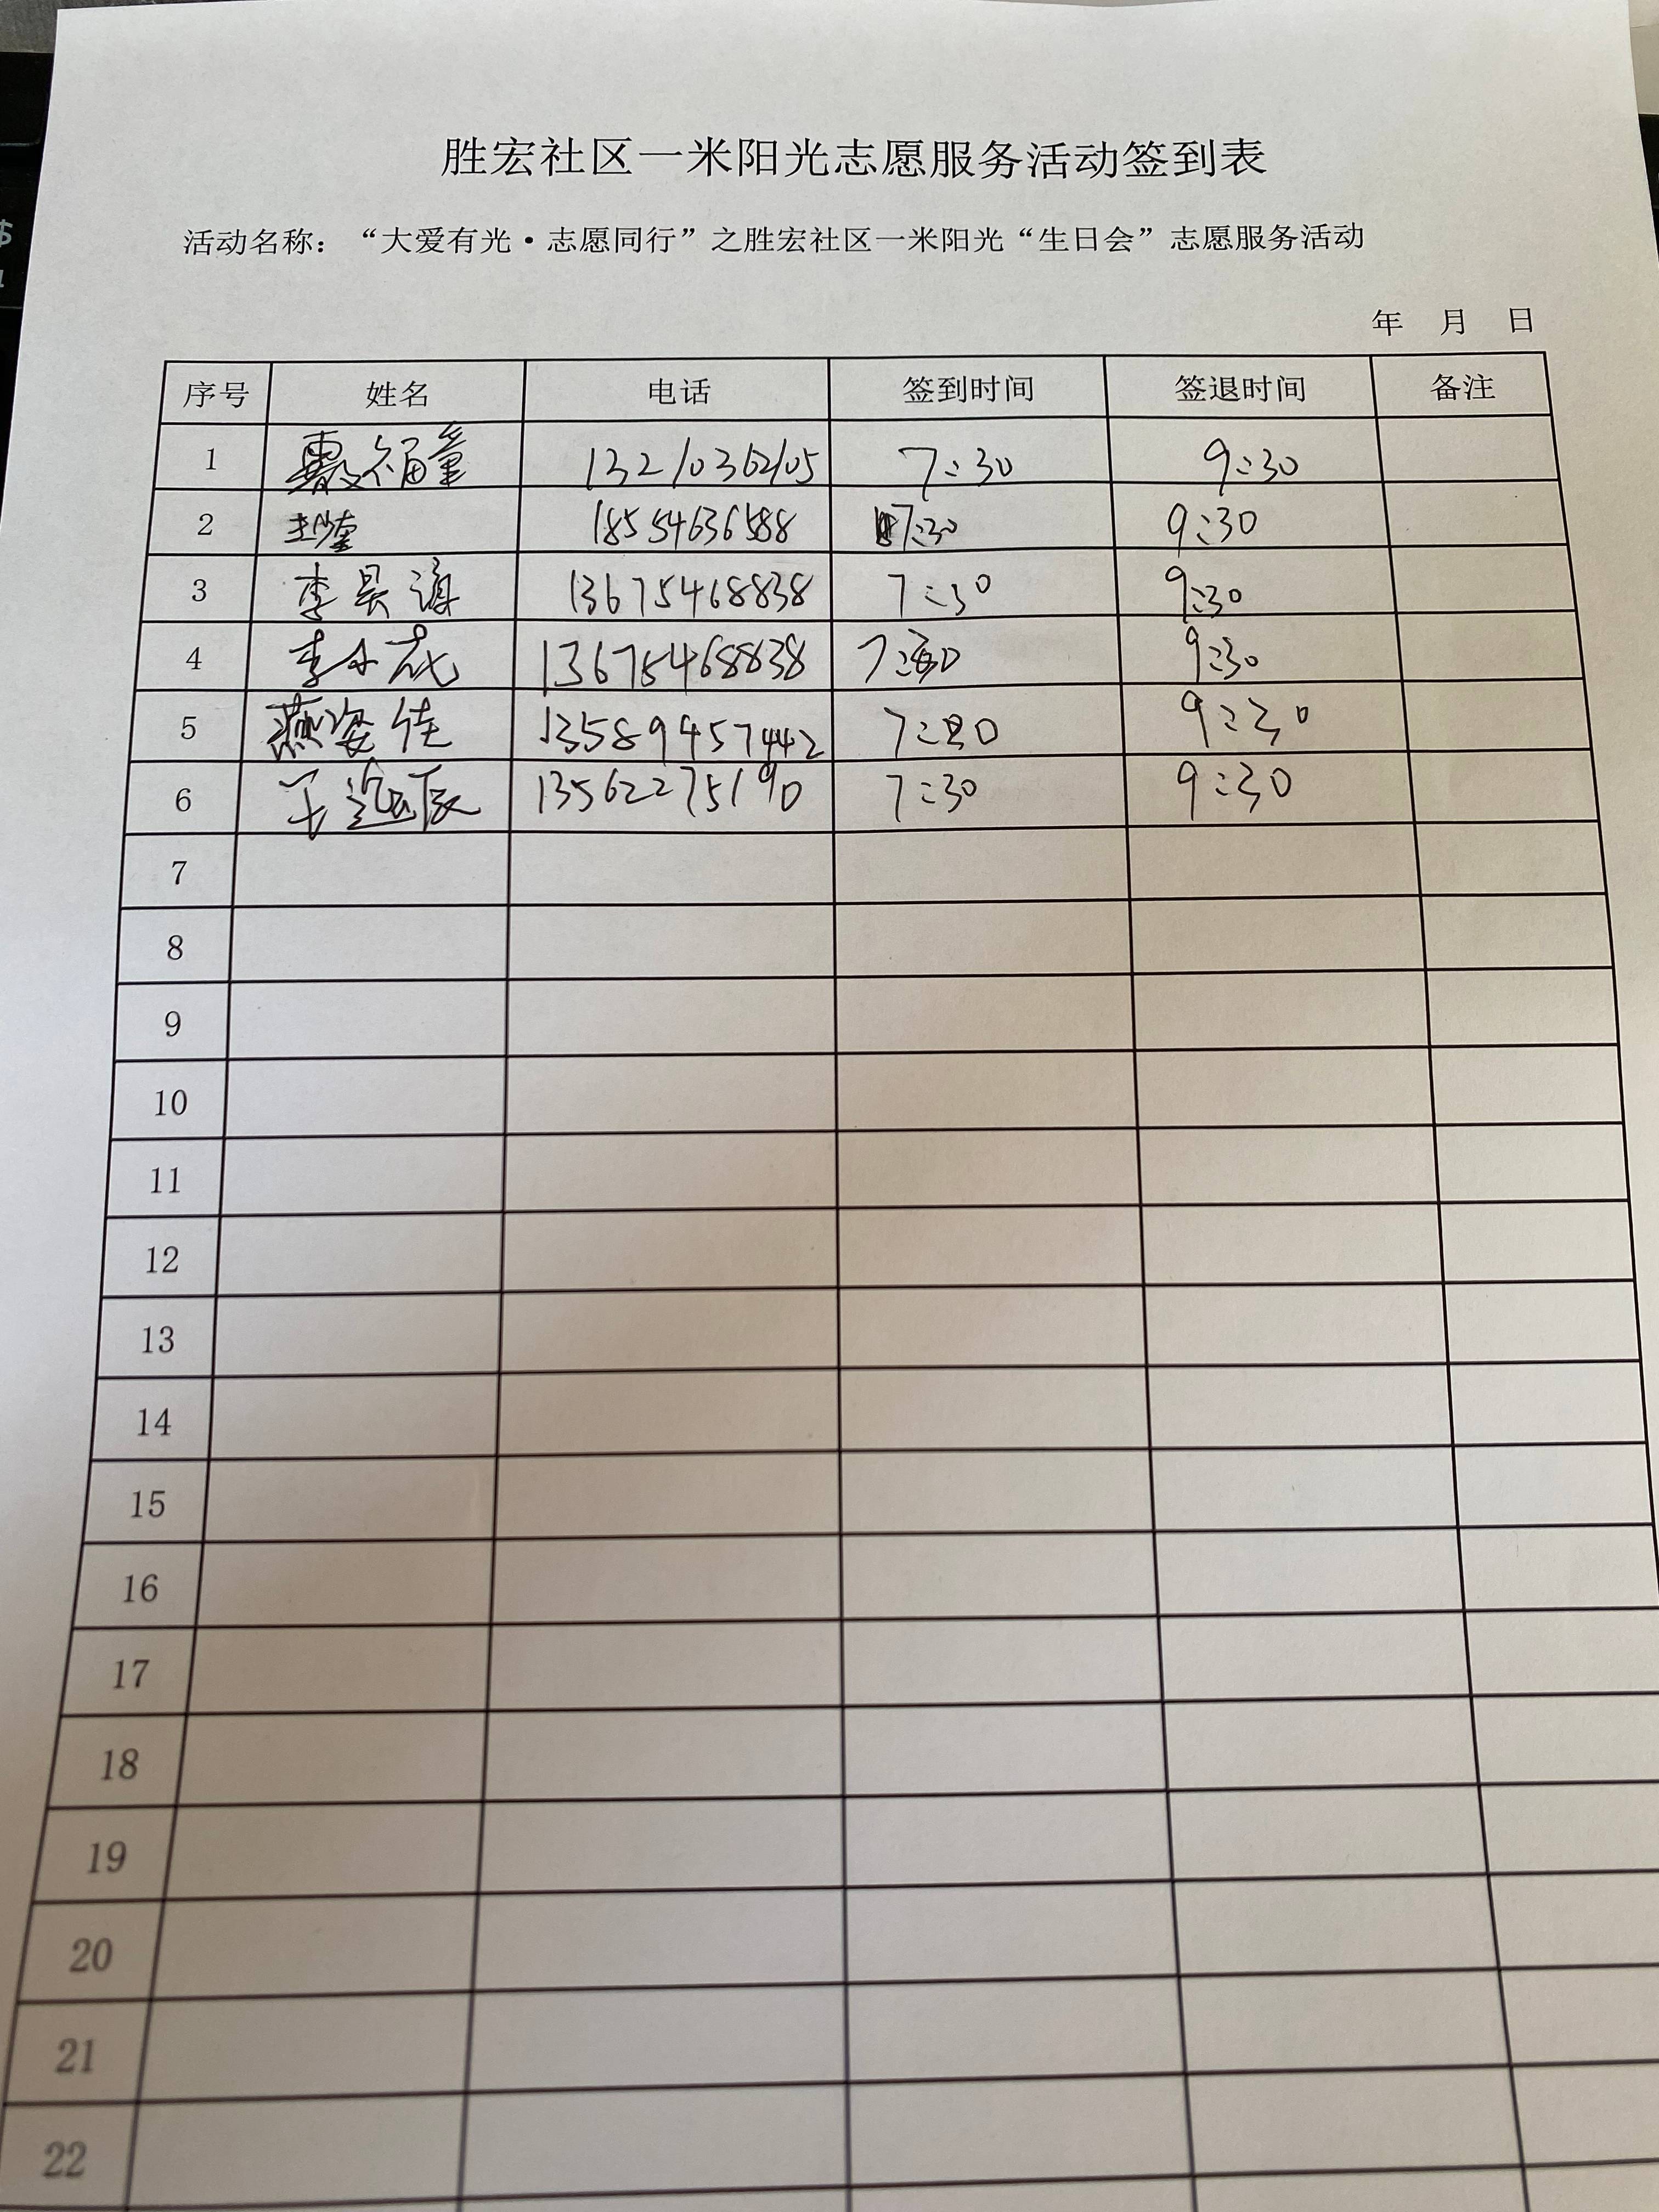 胜宏社区一米阳光志愿服务活动签到表
活动名称：“大爱有光·志愿同行”之胜宏社区一米阳光“生日会”志愿服务活动
年 月 日
序号 姓名 电话 签到时间 签退时间 备注
1 13210362105 7:30 9:30
2 18554636588 7:30 9:30
3 李昊 13675468838 7:30 9:30
4 李小花 13675468838 7:30 9:30
5 燕姿佳 13589457442 7:30 9:30
6 13562275190 7:30 9:30
7
8
9
10
11
12
13
14
15
16
17
18
19
20
21
22